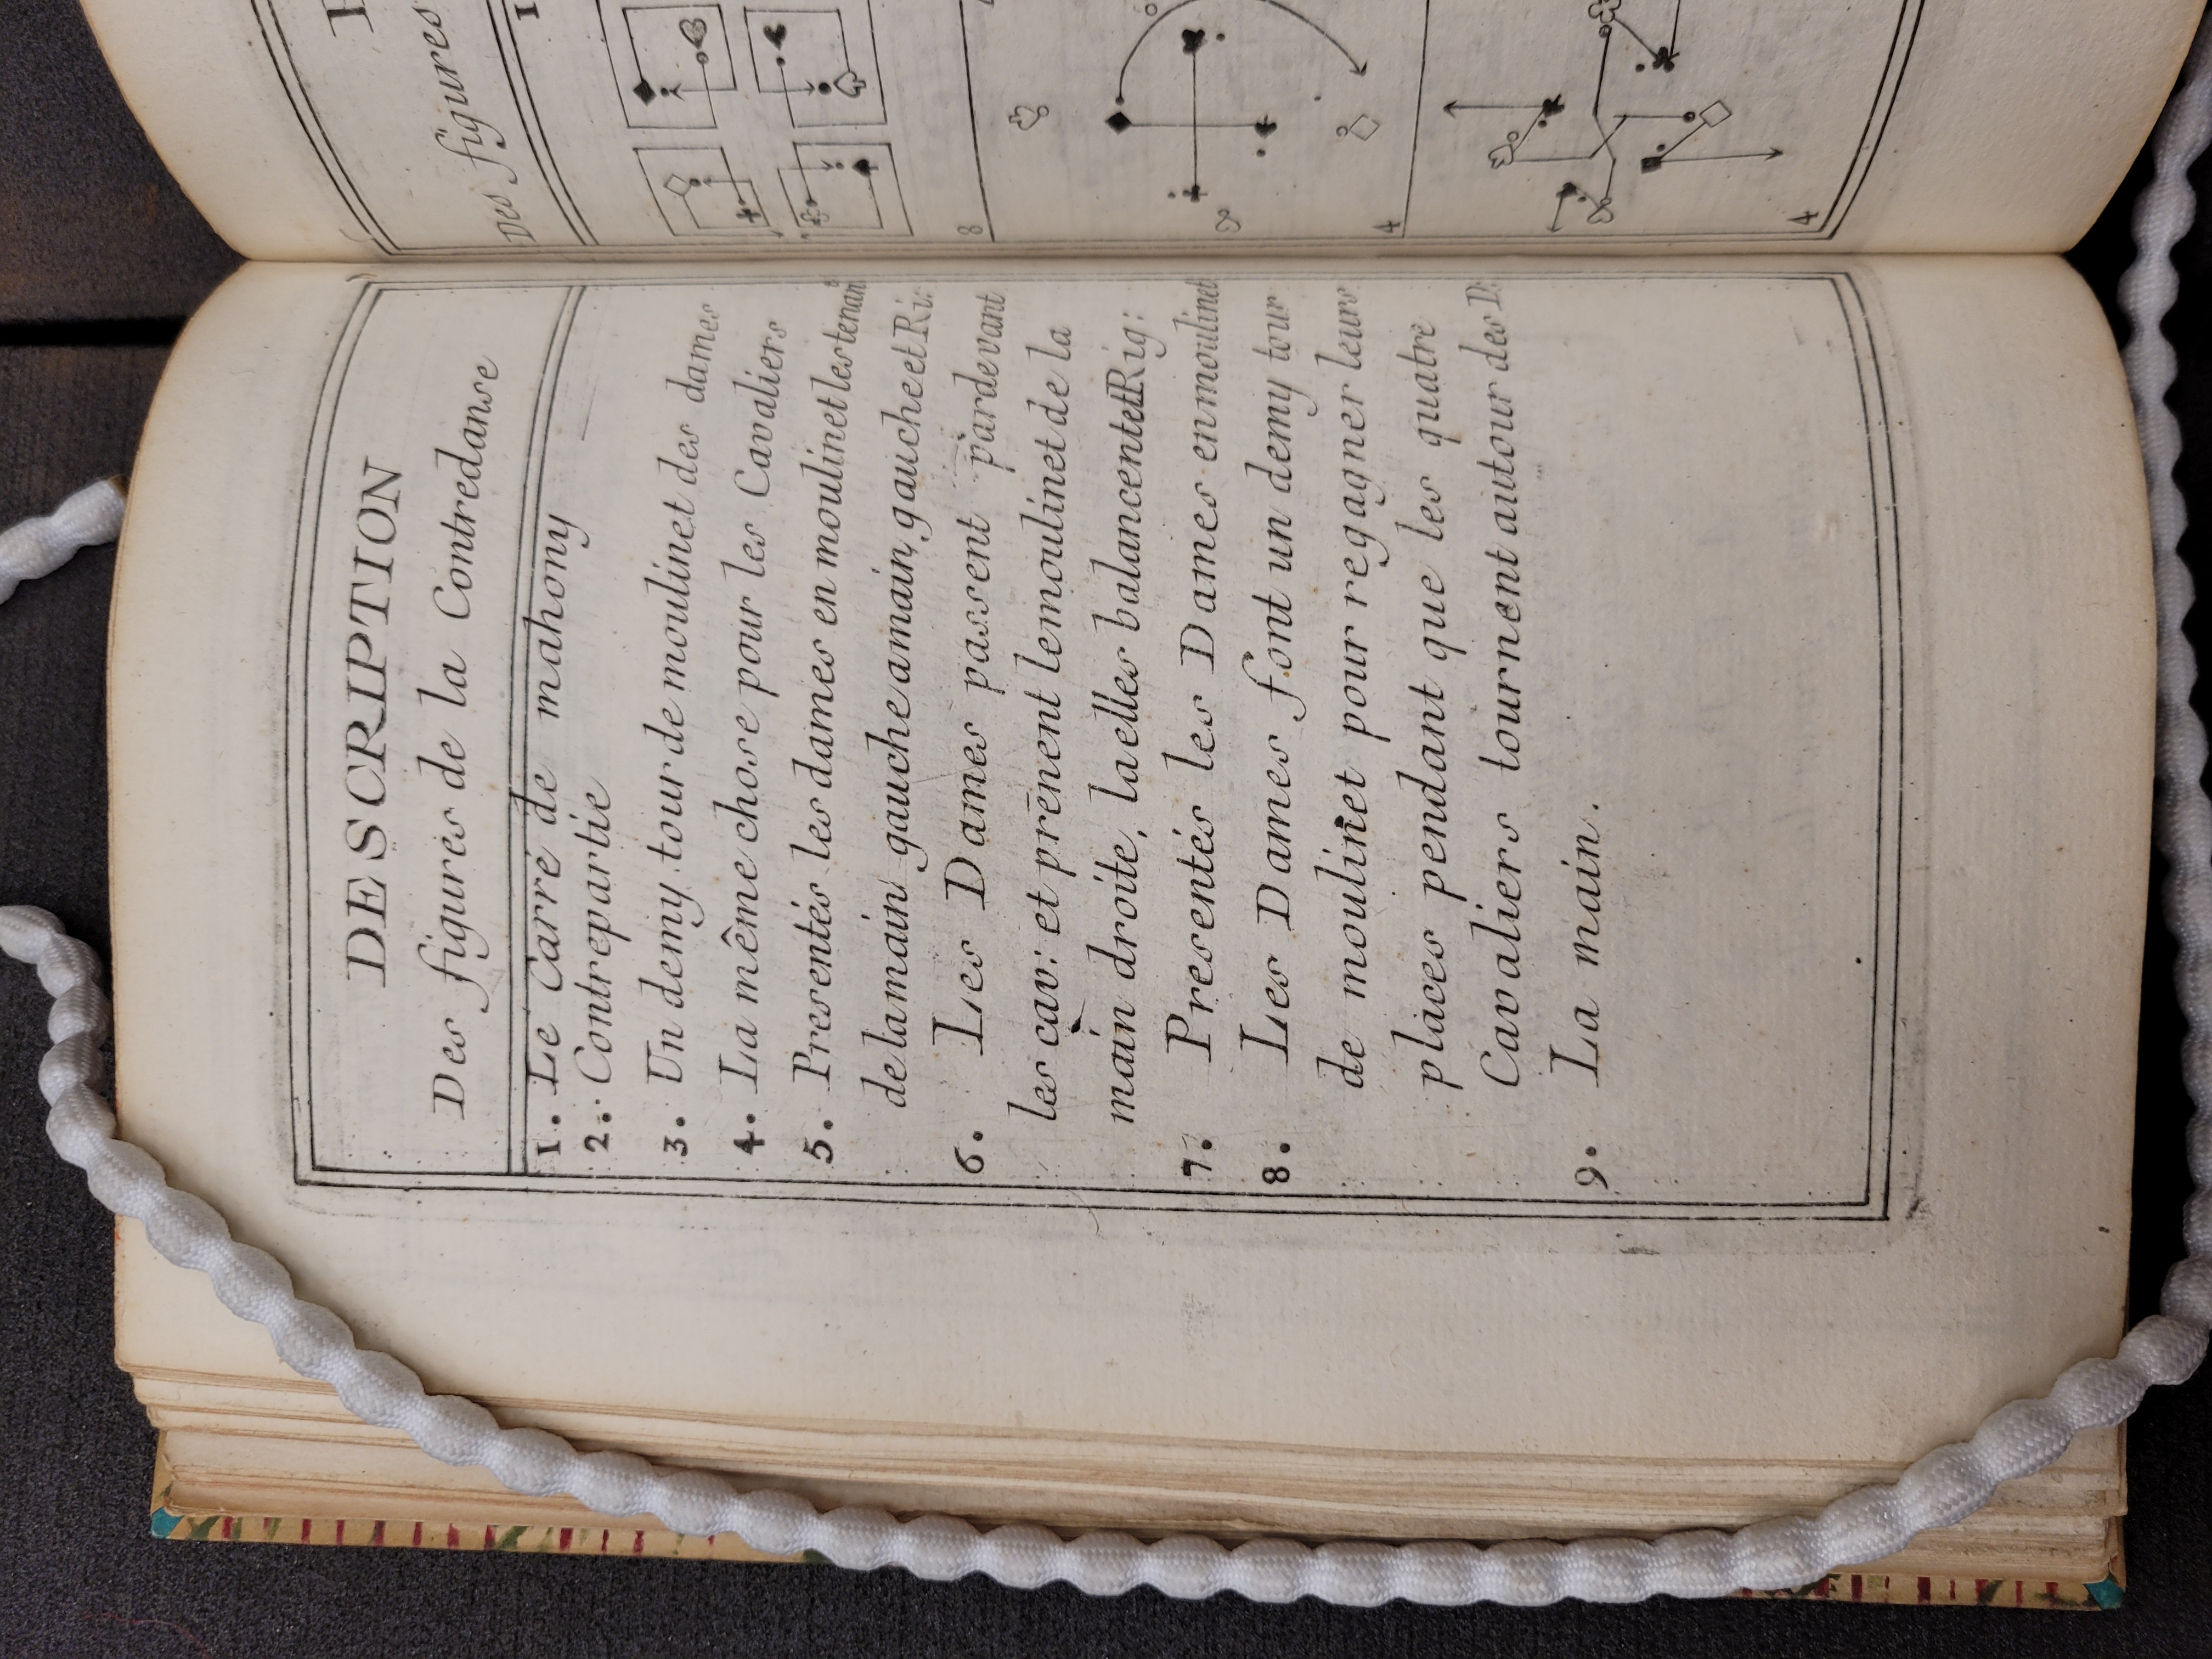 DESCRIPTION
Des figures de la Contredanse
1. Le Carré de mahony
2. Contrepartie
3. Un demy tour de moulinet des dames
4. La même chose pour les Cavaliers
5. Presentés les dames en moulinet les tenant
de la main gauche a main, gauche et Ri:
6. Les Dames passent par devant
les cav: et prēnent le moulinet de la
main droite, la elles balancent et Rig:
7. Presentés les Dames en moulinet
8. Les Dames font un demy tour
de moulinet pour regagner leurs
places pendant que les quatre
Cavaliers tournent autour des D:
9. La main.
Des figures
1
8
4
4